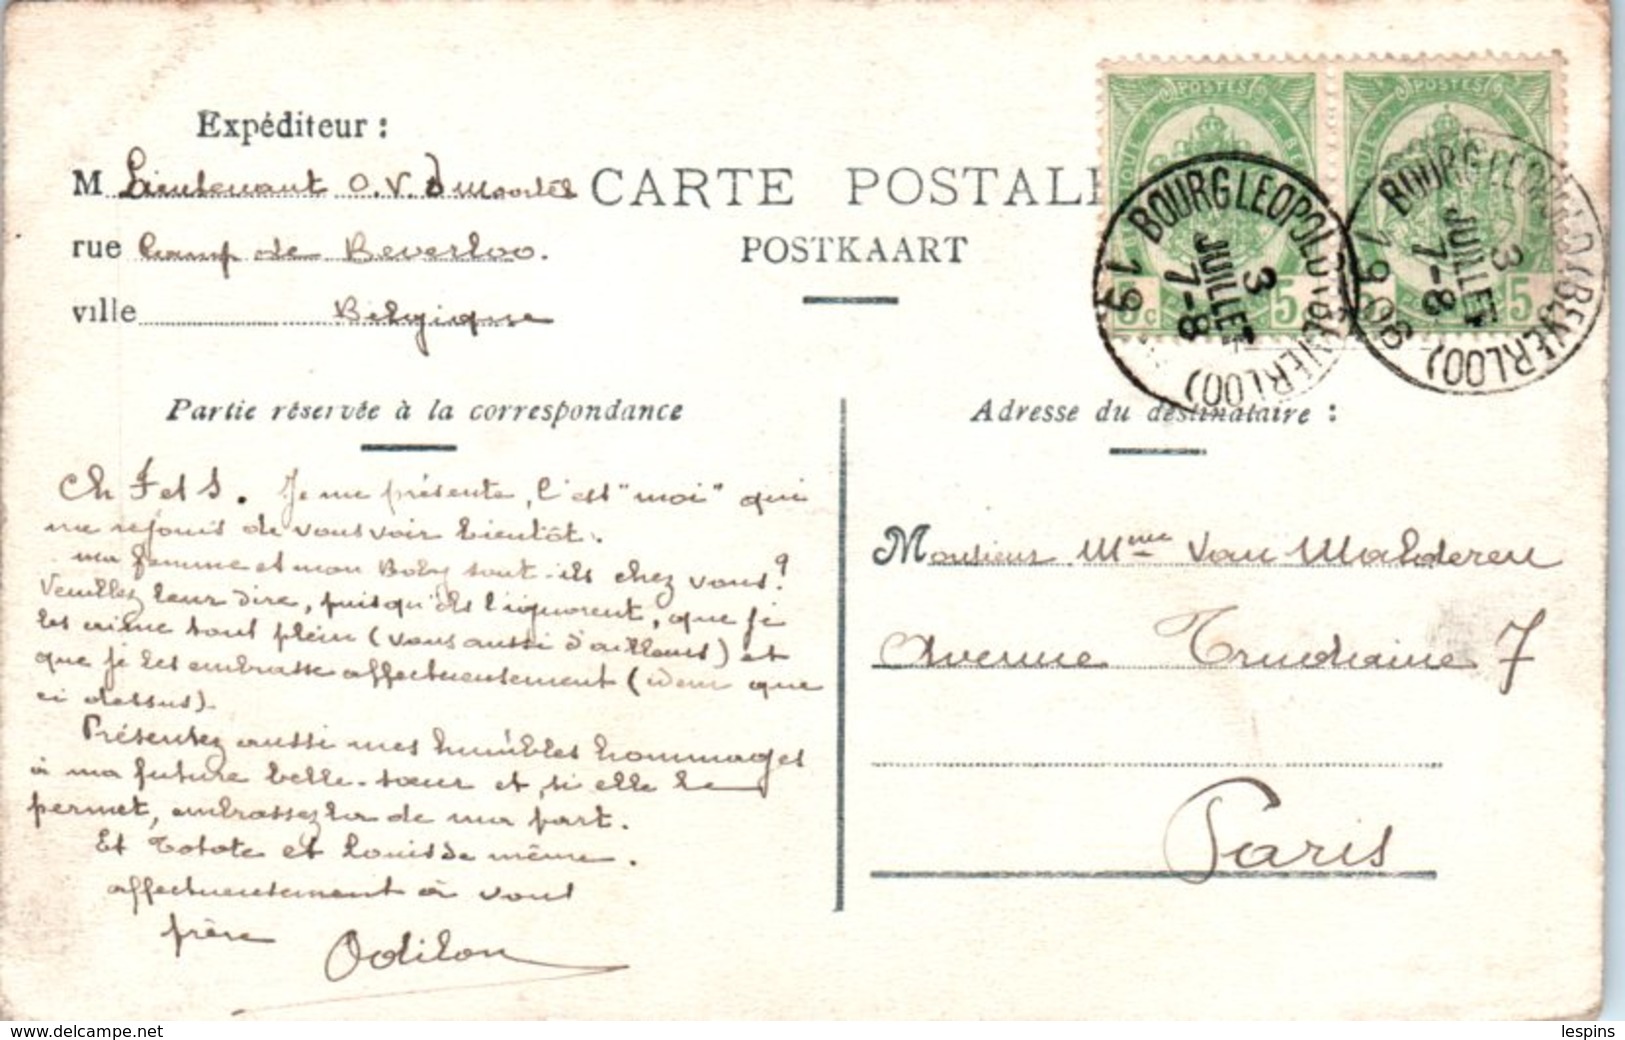 Expéditeur :
M Lieutenant O. V. d Moortel
rue Camp de Beverloo.
ville Belgique
CARTE POSTALE
POSTKAART
POSTES
POSTES
5c
5
5
BOURG LEOPOLD (BEVERLOO)
3
JUILLET
7-8
19
BOURG LEOPOLD (BEVERLOO)
3
JUILLET
7-8
1906
Partie réservée à la correspondance
Ch F et S. Je me présente, c'est "moi" qui
me rejouis de vous voir bientôt.
ma femme et mon Boby sont-ils chez vous?
Veuillez leur dire, puisqu'ils l'ignorent, que je
les aime tout plein (vous aussi d'ailleurs) et
que je les embrasse affectueusement (idem que
ci dessus).
Présentez aussi mes humbles hommages
à ma future belle-sœur et, si elle le
permet, embrassez la de ma part.
Et Totote et Louis de même.
affectueusement à vous
frère Odilon
Adresse du destinataire :
Monsieur Mme Van Malderen
Avenue Trudaine 7
Paris
www.delcampe.net
lespins